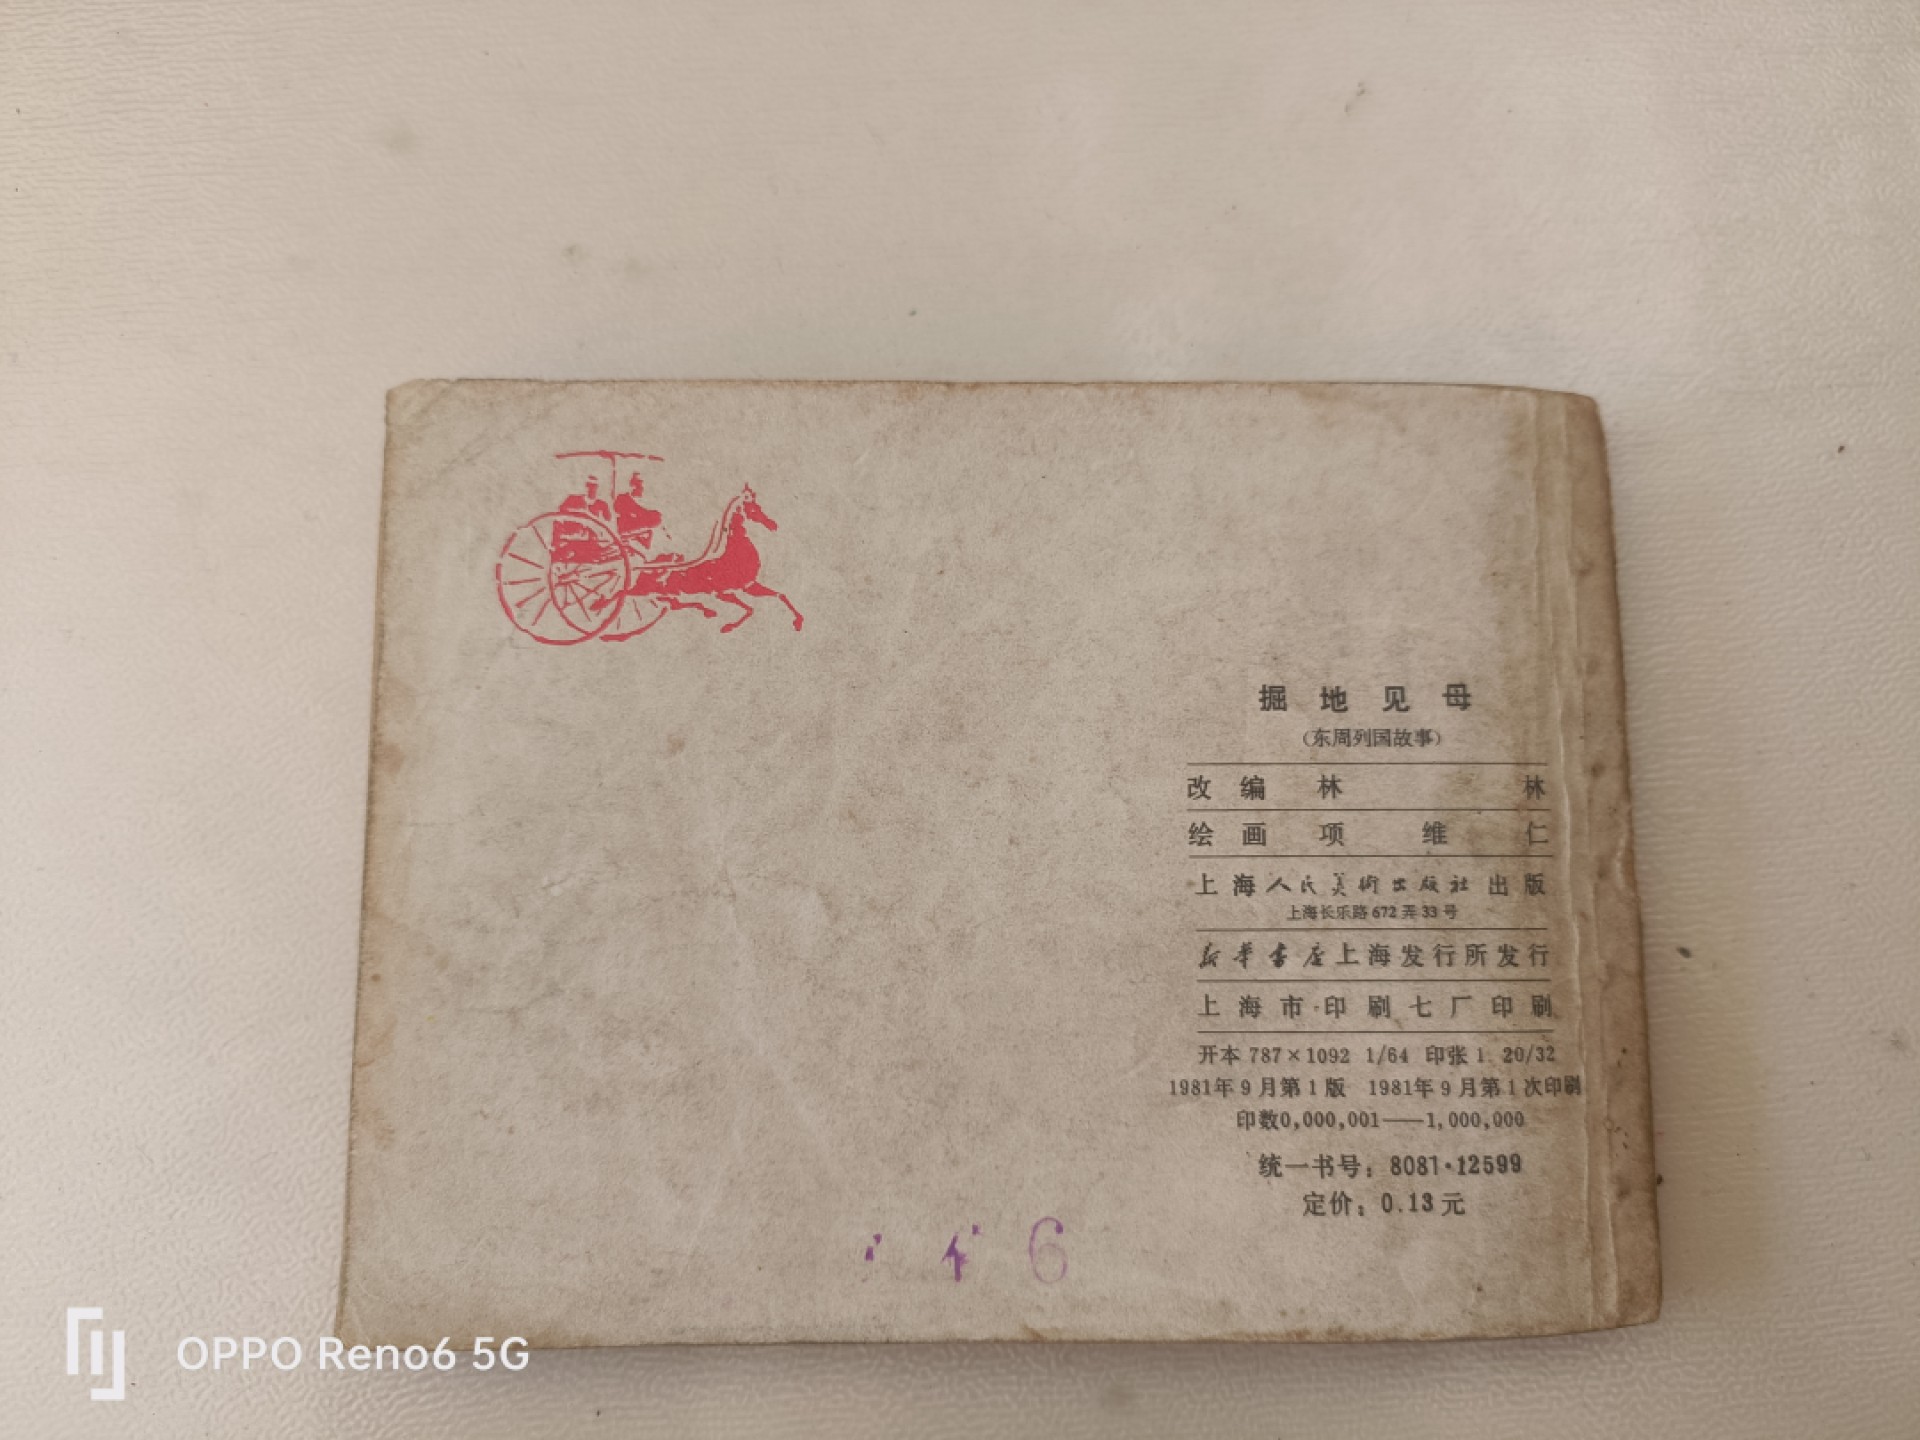 掘地见母
(东周列国故事)
改编 林林
绘画 项维仁
上海人民美術出版社出版
上海长乐路672弄33号
新华书店上海发行所发行
上海市印刷七厂印刷
开本 787×1092 1/64 印张 1 20/32
1981年9月第1版 1981年9月第1次印刷
印数0,000,001——1,000,000
统一书号：8081·12599
定价：0.13元
6
OPPO Reno6 5G